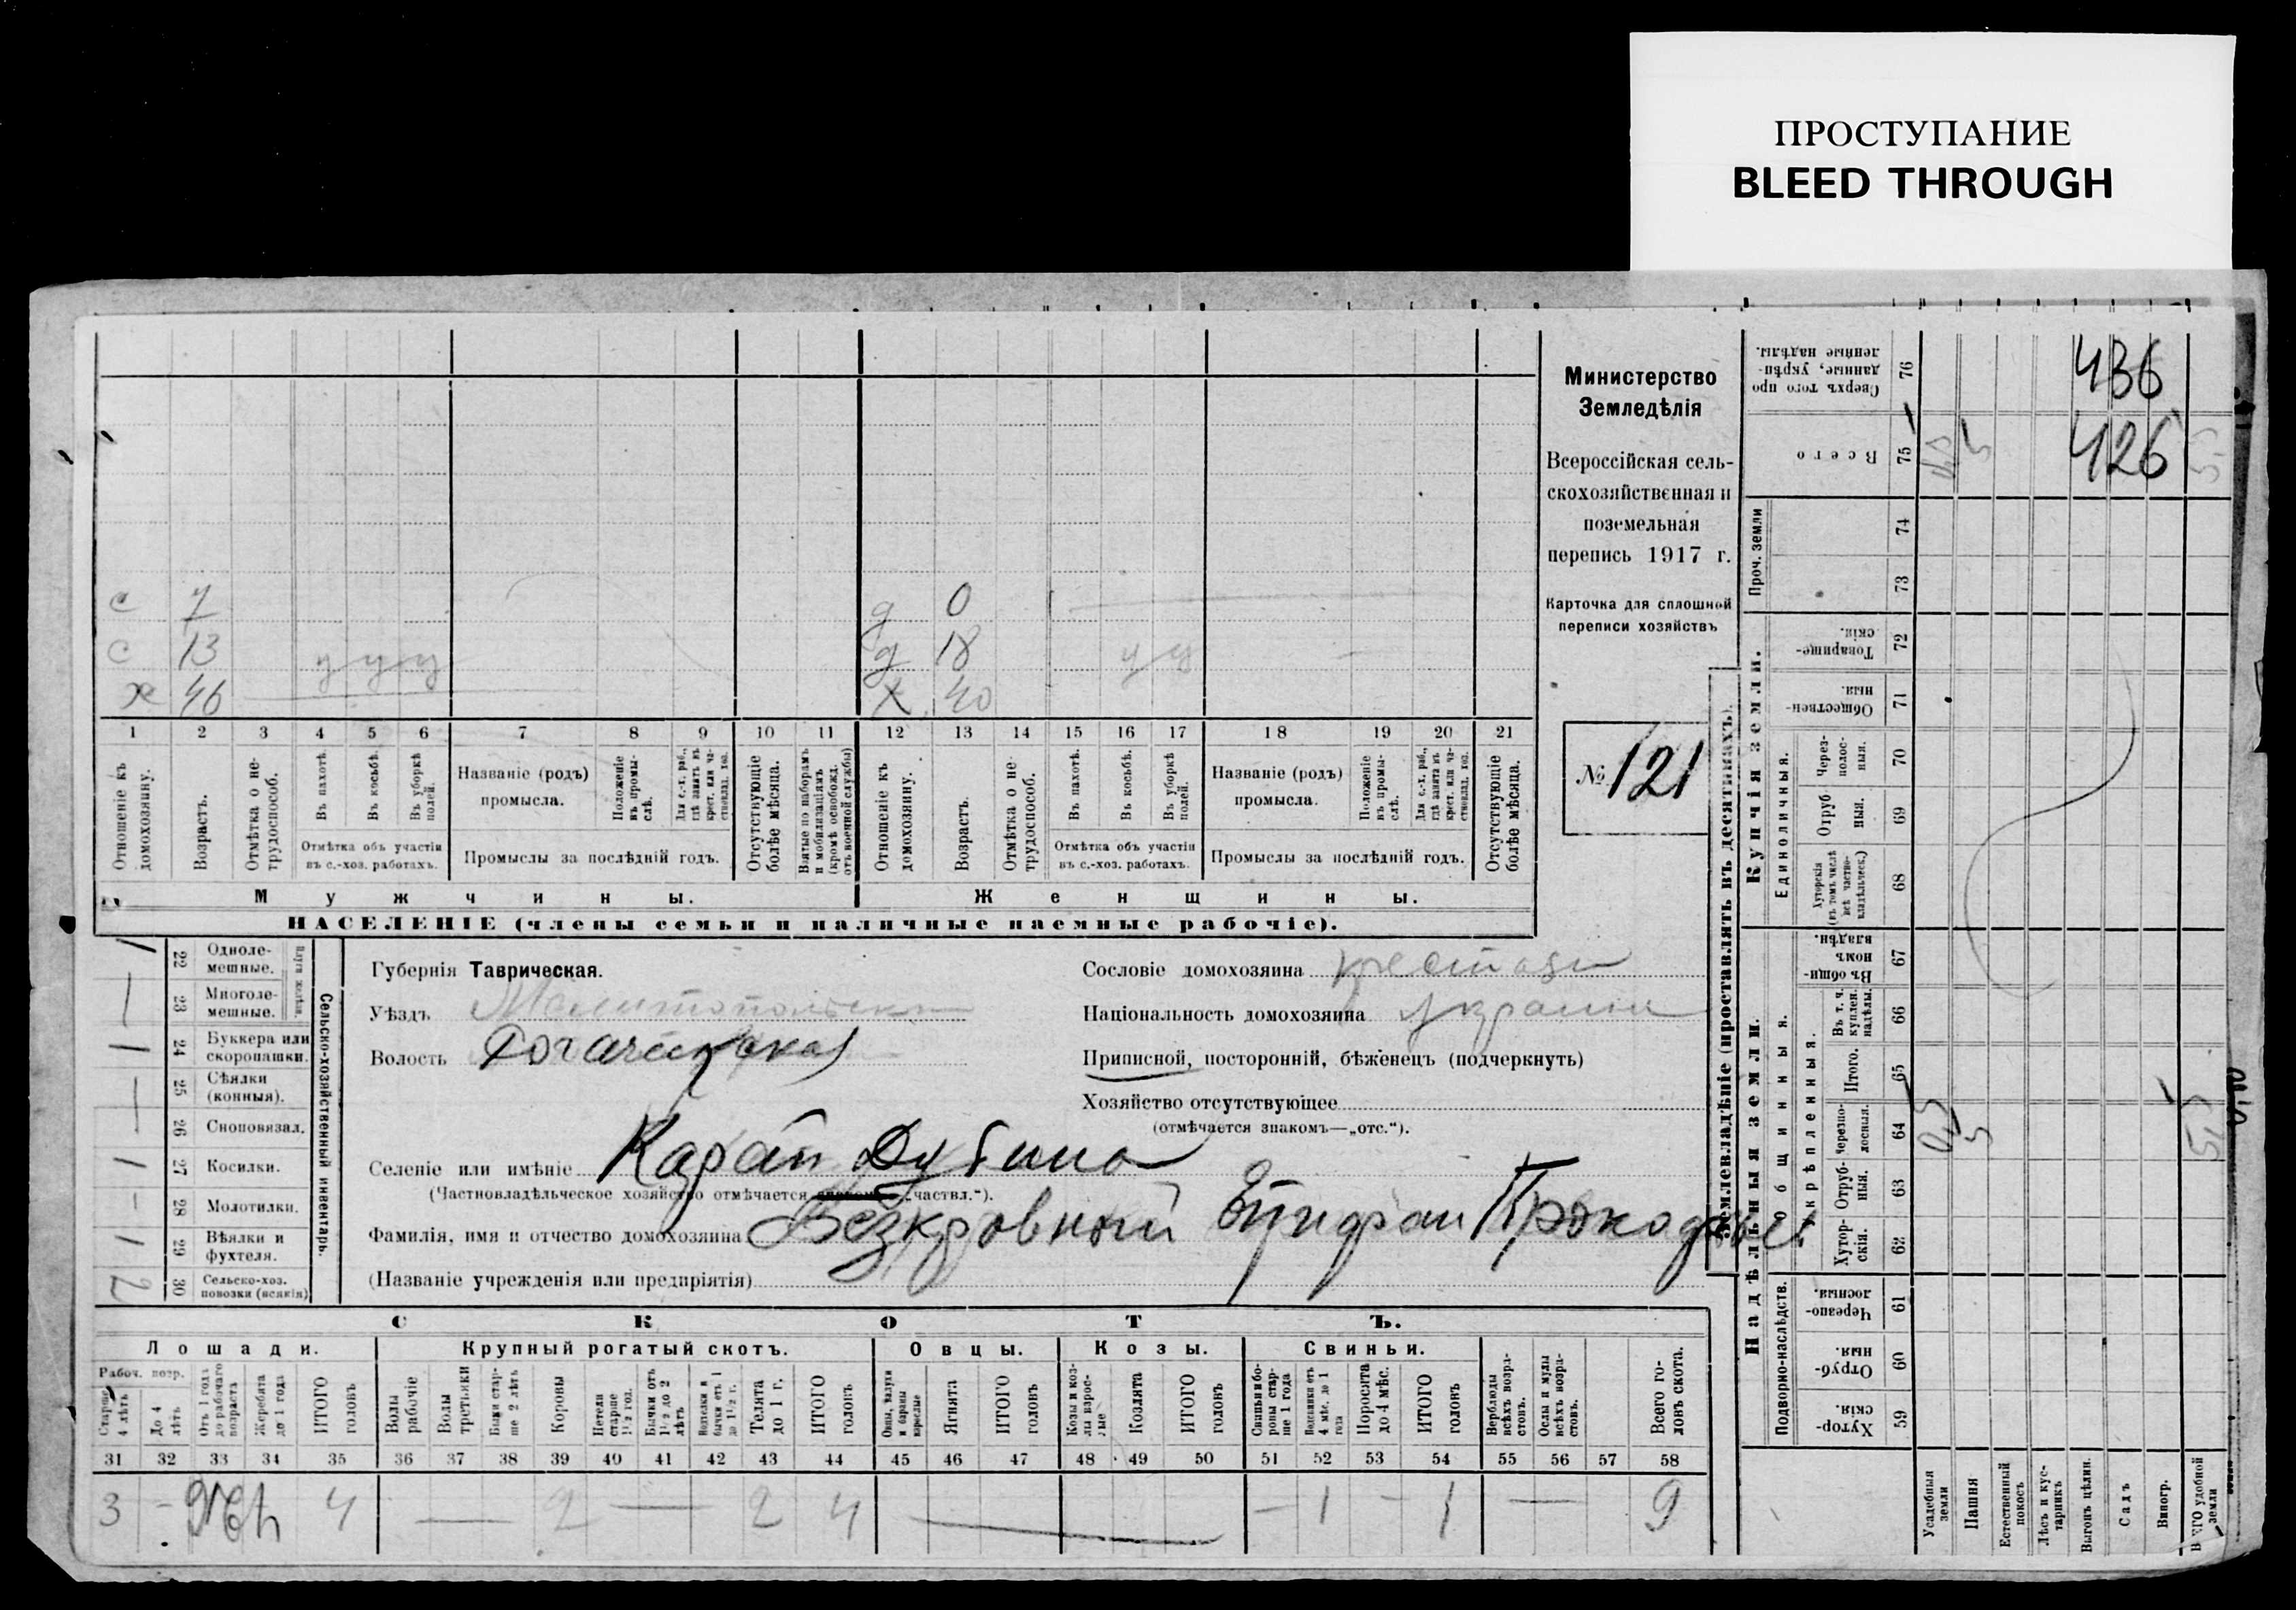 ПРОСТУПАНИЕ
BLEED THROUGH
Министерство
Земледѣлія
Всероссійская сель-
скохозяйственная и
поземельная
перепись 1917 г.
Карточка для сплошной
переписи хозяйствъ
№ 121
с 7 д 0
с 13 у у у д 18 у у
х 46 х 40
1 2 3 4 5 6 7 8 9 10 11 12 13 14 15 16 17 18 19 20 21
Отношеніе къ домохозяину.
Возрастъ.
Отмѣтка о не-трудоспособ.
Въ пахотѣ.
Въ косьбѣ.
Въ уборкѣ полей.
Отмѣтка объ участіи
въ с.-хоз. работахъ.
Названіе (родъ)
промысла.
Положеніе въ промы-слѣ.
Промыслы за послѣдній годъ.
Отсутствующіе болѣе мѣсяца.
Взятые по наборамъ и мобилизаціямъ (кромѣ освобожд. отъ военной службы)
Отношеніе къ домохозяину.
Возрастъ.
Отмѣтка о не-трудоспособ.
Въ пахотѣ.
Въ косьбѣ.
Въ уборкѣ полей.
Отмѣтка объ участіи
въ с.-хоз. работахъ.
Названіе (родъ)
промысла.
Положеніе въ промы-слѣ.
Промыслы за послѣдній годъ.
Отсутствующіе болѣе мѣсяца.
Мужчины. Женщины.
НАСЕЛЕНІЕ (члены семьи и наличные наемные рабочіе).
Сельско-хозяйственный инвентарь.
1 22 Одноле-мешные.
— 23 Многоле-мешные.
1 24 Буккера или скоропашки.
— 25 Сѣялки (конныя).
26 Сноповязал.
1 27 Косилки.
- 28 Молотилки.
1 29 Вѣялки и фухтеля.
2 30 Сельско-хоз. повозки (всякія)
Губернія Таврическая.
Уѣздъ Мелитопольскій
Волость Рогачикская
Селеніе или имѣніе Карай Дубина
(Частновладѣльческое хозяйство отмѣчается „частвл.“).
Фамилія, имя и отчество домохозяина Безкровный Епифан Прокофьев
(Названіе учрежденія или предпріятія)
Сословіе домохозяина
Національность домохозяина украин
Приписной, посторонній, бѣженецъ (подчеркнуть)
Хозяйство отсутствующее
(отмѣчается знакомъ—„отс.“).
СКОТЪ.
Лошади. Крупный рогатый скотъ. Овцы. Козы. Свиньи.
Рабоч. возр.
Старше 4 лѣтъ
До 4 лѣтъ
Отъ 1 года до рабочаго возраста
Жеребята до 1 года
ИТОГО головъ
Волы рабочіе
Волы третьяки
Быки стар-ше 2 лѣтъ
Коровы
Нетели старше 1½ год.
Бычки отъ 1½ до 2 лѣтъ
Телята до 1 г.
ИТОГО головъ
Ягнята
ИТОГО головъ
Козлята
ИТОГО головъ
Поросята до 4 мѣс.
ИТОГО головъ
Верблюды всѣхъ возра-стовъ.
Ослы и мулы всѣхъ возра-стовъ.
Всего го-ловъ скота.
31 32 33 34 35 36 37 38 39 40 41 42 43 44 45 46 47 48 49 50 51 52 53 54 55 56 57 58
3 - 4 — 2 — 2 4 — - 1 - 1 — 9
Землевладѣніе (проставлять въ десятинахъ).
Купчія земли.
Надѣльныя земли.
Сверхъ того про даннные, укрѣп-ленные надѣлы. 76
Всего 75
Проч. земли 74 73
Товарище-скія. 72
Обществен-ныя. 71
Единоличныя.
Через-полос-ныя. 70
Отруб ныя. 69
Хуторскія (въ томъ числѣ всѣ частно-владѣльческ.) 68
Въ общин-номъ владѣн. 67
Общинныя.
Укрѣпленныя.
Въ т. ч. куплен. надѣлы. 66
Итого. 65
Черезпо-лосныя. 64
Отруб-ныя. 63
Хутор-скія. 62
Подворно-наслѣдств.
Черезпо-лосныя. 61
Отруб-ныя. 60
Хутор-скія. 59
Усадебныя земли
Пашня
Естественный покосъ
Лѣсъ и кус-тарникъ
Выгонъ цѣлин.
Садъ
Виногр.
436
426